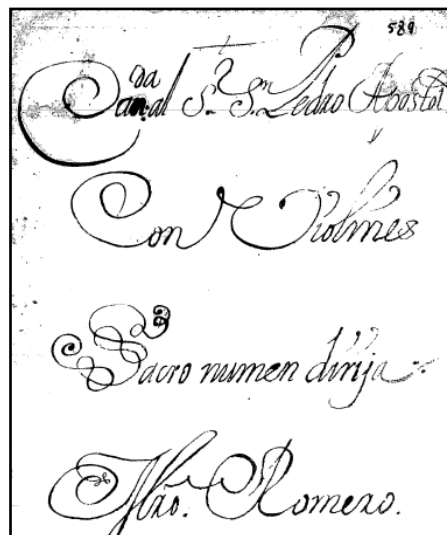 589
Can.da al S.r S.n Pedro Apostol
Con Violines
Sacro numen dirija
Mro. Romero.